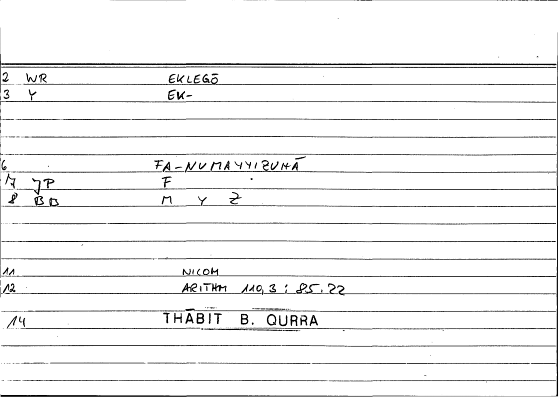 2 WR EKLEGŌ
3 Y EK-
6 FA-NUMAYYIZUHĀ
7 JP F
8 BB M Y Z
11 NICOM
12 ARITHM 110,3 : 85.22
14 THĀBIT B. QURRA